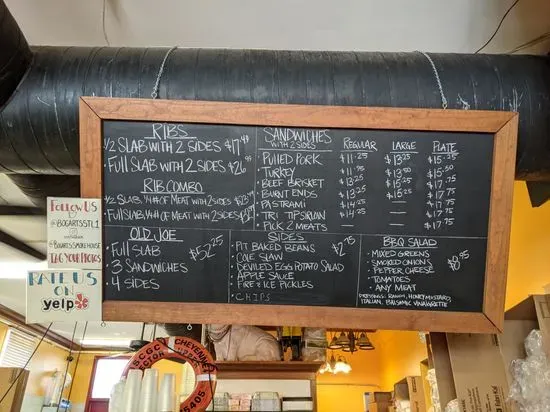 RIBS
1/2 SLAB WITH 2 SIDES $17.49
FULL SLAB WITH 2 SIDES $26.99
RIB COMBO
1/2 SLAB, 1/4# OF MEAT WITH 2 SIDES
FULL SLAB, 1/4# OF MEAT WITH 2 SIDES
OLD JOE
FULL SLAB
3 SANDWICHES
4 SIDES
$52.25
SANDWICHES
WITH 2 SIDES
REGULAR LARGE PLATE
PULLED PORK $11.25 $13.25 $15.25
TURKEY $11.95 $13.50 $15.50
BEEF BRISKET $13.25 $15.25 $17.75
BURNT ENDS $13.25 $15.25 $17.75
PASTRAMI $14.25 — $17.75
TRI TIP SIRLOIN $14.25 — $17.75
PICK 2 MEATS — — $17.75
SIDES
PIT BAKED BEANS
COLE SLAW
DEVILED EGG POTATO SALAD
APPLE SAUCE
FIRE & ICE PICKLES
CHIPS
$2.75
BBQ SALAD
MIXED GREENS
SMOKED ONIONS
PEPPER CHEESE
TOMATOES
ANY MEAT
DRESSINGS: RANCH, HONEY MUSTARD,
ITALIAN, BALSAMIC VINAIGRETTE
FOLLOW US
@BOGARTSSTL1
@BOGARTSSMOKEHOUSE
TAG YOUR PHOTOS
RATE US
ON yelp
CHEYENNE